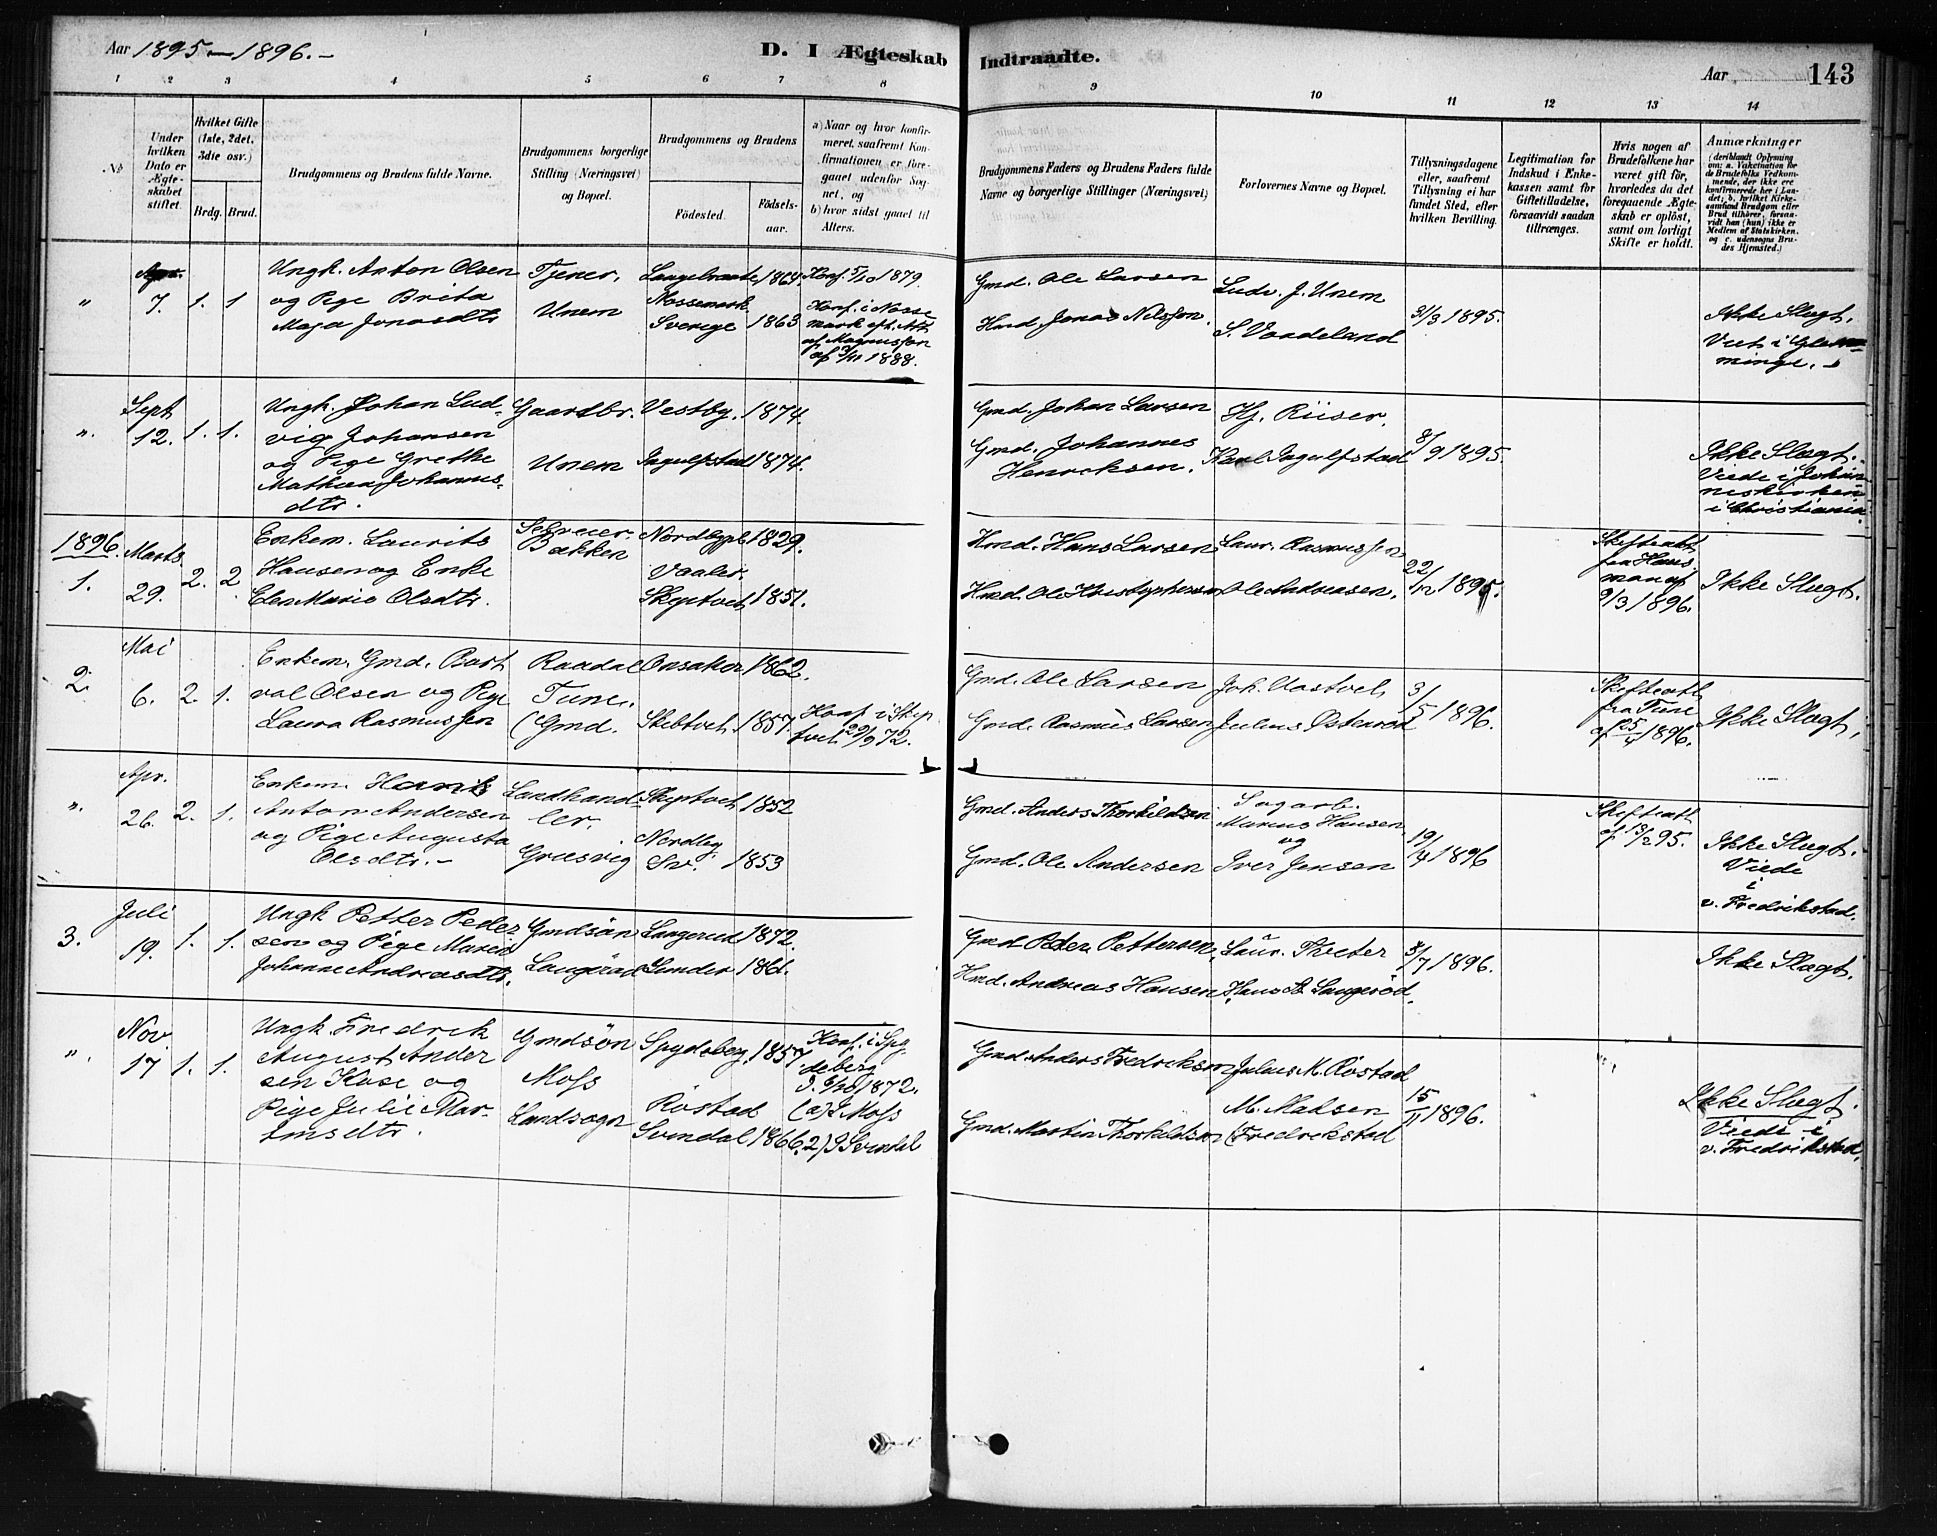 Aar 1895—1896.—
D. I Ægteskab Indtraadte.
Aar
143
1 2 3 4 5 6 7 8 9 10 11 12 13 14
No
Under
hvilken
Dato er
Ægte-
skabet
stiftet.
Hvilket Gifte
(1ste, 2det,
3die osv.)
Brdg. Brud.
Brudgommens og Brudens fulde Navne.
Brudgommens borgerlige
Stilling (Næringsvei)
og Bopæl.
Brudgommens og Brudens
Födested.
Födsels-
aar.
a) Naar og hvor konfir-
meret, saafremt Kon-
firmationen er fore-
gaaet udenfor Sog-
net, og
b) hvor sidst gaaet til
Alters.
Brudgommens Faders og Brudens Faders fulde
Navne og borgerlige Stillinger (Næringsvei)
Forlovernes Navne og Bopæl.
Tillysningsdagene
eller, saafremt
Tillysning ei har
fundet Sted, efter
hvilken Bevilling.
Legitimation for
Indskud i Enke-
kassen samt for
Giftetilladelse,
forsaavidt saadan
tiltrænges.
Hvis nogen af
Brudefolkene har
været gift för,
hvorledes da det
foregaaende Ægte-
skab er oplöst,
samt om lovligt
Skifte er holdt.
Anmærkninger
(deriblandt Oplysning
om: a. Vakcination for
de Brudefolks Vedkom-
mende, der ikke ere
konfirmerede her i Lan-
det; b. hvilket Kirke-
samfund Brudgom eller
Brud tilhörer, forsaa-
vidt han (hun) ikke er
Medlem af Statskirken,
og c. udensogns Bru-
des Hjemsted.)
"
7. 1. 1
Ungk. Anton Olsen
og Pige Brita
Maja Jonasdtr
Tjener,
Unem
1864.
Nossemark
Sverige 1863
Konf. 5/10 1879.
Konf. i Nosse
mark eft. Att
af Magnusson
1888.
Gmd. Ole Larsen
Hmd. Jonas Nilsson.
Ludv. J. Unem
S. Vardeland
31/3 1895.
Ikke Slægt.
Viet i Glem-
minge.
"
Sept
12. 1. 1.
Ungk. Johan Lud-
vig Johansen
og Pige Grethe
Mathea Johannes-
dtr.
Gaardbr.
Unem
Vestby. 1874.
Ingulfstad 1874.
Gmd. Johan Larsen
Gmd. Johannes
Henriksen.
Hj. Riiser.
Karl Ingulfstad
8/9 1895.
Ikke Slægt.
Viede i Johan
neskirken
i Christiania.
1896.
1.
Marts
29. 2. 2.
Enkem. Laurits
Hansen og Enke
Elen Marie Olsdtr.
Bakken
1829.
Vaaler.
Skiptvet 1851.
Hmd. Hans Larsen
Hmd. Ole Kristophersen
Laur. Rasmussen
Ole Andreasen.
22/12 1895.
Skifteatt
fra Hans
man af
9/3 1896.
Ikke Slægt.
2.
Mai
6. 2. 1.
Enkem. Gmd.
val Olsen og Pige
Laura Rasmussen
Raadal
Tune.
(Gmd.
Onsaker 1862.
Skibtvet 1857.
Konf. i Skip
tvet 29/9 72.
Gmd. Ole Larsen
Gmd. Rasmus Larsen
Joh. Aastvet
Julius Østerød
3/5 1896.
Skifteatt
fra Tune
af 25/4 1896.
Ikke Slægt,
"
Apr.
26. 2. 1.
Enkem. Hans
Anton Andersen
og Pige Augusta
Olsdtr.—
Landhand-
ler.
Græsvig
Skiptvet 1852
Nordby
Sv. 1853
Gmd. Anders Thorkildsen
Gmd. Ole Andersen
Sagarb.
Marius Hansen
og
Iver Jensen
19/4 1896
Skifteatt
af 13/2 95.
Ikke Slægt.
Viede
i
v. Fredrikstad.
3.
Juli
19. 1. 1.
Ungk Petter Peder-
sen og Pige Maren
Johanne Andreasdtr.
Gmdsön
Langerud 1872.
1861.
Gmd. Peder Pettersen
Hmd. Andreas Hansen
Laur. Thveter
Hans A. Langeröd.
1896.
Ikke Slægt.
"
Nov.
17 1. 1.
Ungk. Fredrik
August Ander
sen Kase og
Pige Julie Mar-
tinsdtr.
Gmdsön
Moss
Landsogn
Spydeberg 1857
Röstad
Svindal 1866.
Konf. i Spy
deberg
1872.
(a) I Moss
2) I Svindal
Gmd. Anders Fredriksen
Gmd. Martin Thorkildsen
Julius M. Röstad
M. Madsen
(Fredrikstad
15/11 1896.
Ikke Slægt.
Viede i
v. Fredrikstad.